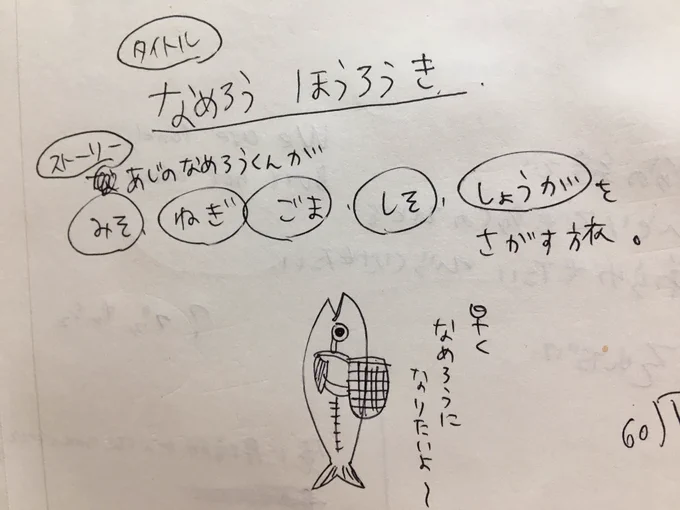 タイトル
なめろう ほうろうき
ストーリー
あじのなめろうくんが
みそ、ねぎ、ごま、しそ、しょうがを
さがす旅。
早く
なめろうに
なりたいよ〜
60